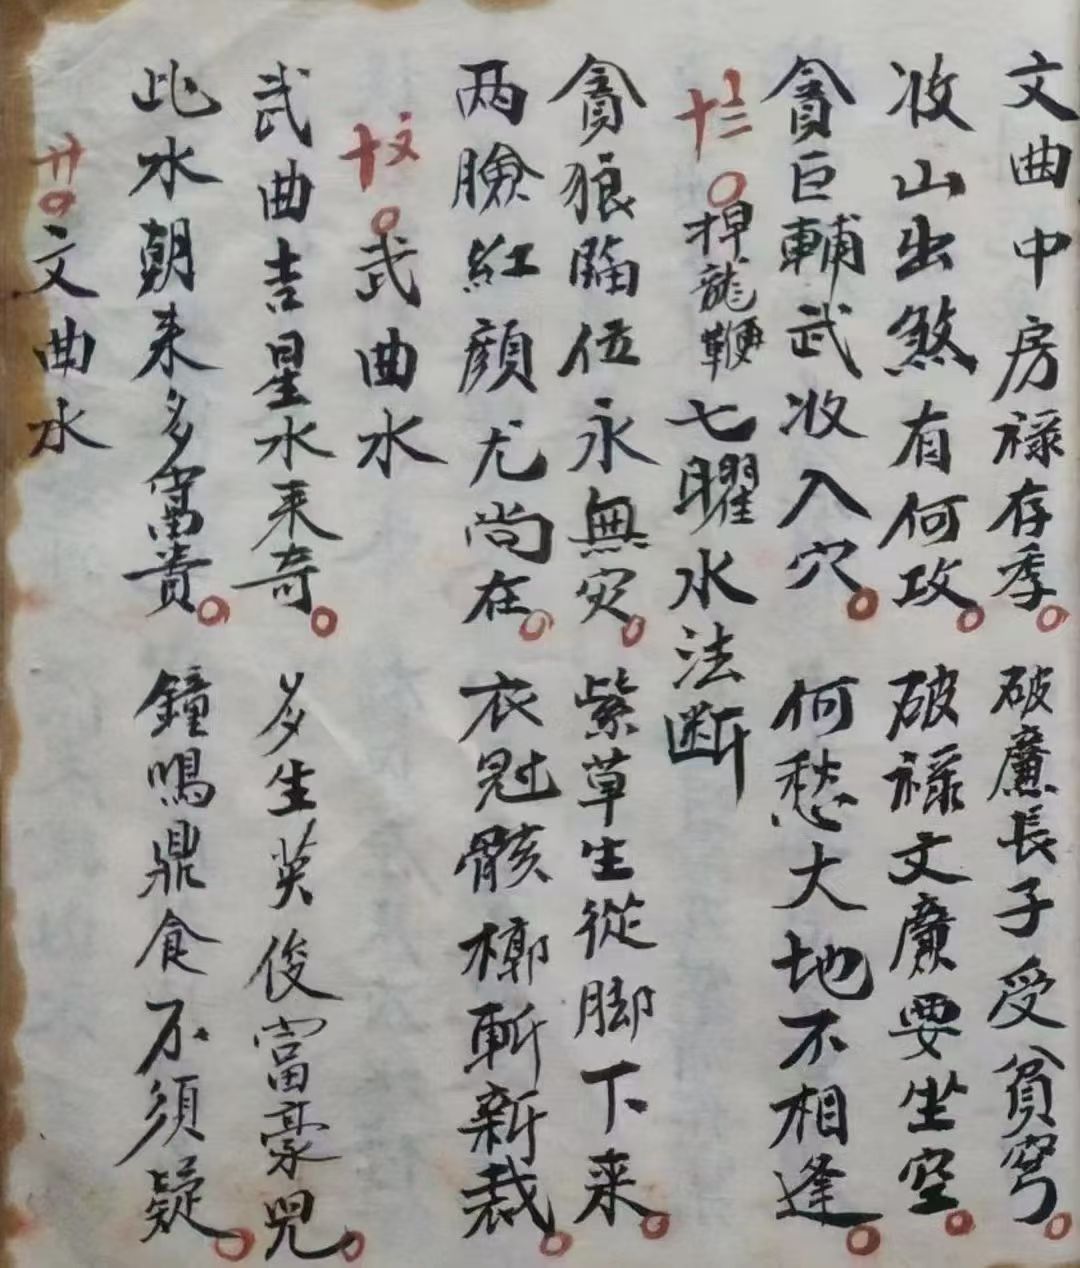 文曲中房祿存季。破廉長子受貧窮。
收山出煞有何攻。破祿文廉要坐空。
貪巨輔武收入穴。何愁大地不相逢。
桿龍鞭七曜水法斷
貪狼臨位永無灾。紫草生從脚下来。
两臉紅顔尤尚在。衣冠骸槨斬新裁。
武曲水
武曲吉星水来奇。多生英俊富豪兒。
此水朝来多富貴。鐘鳴鼎食不須疑。
文曲水